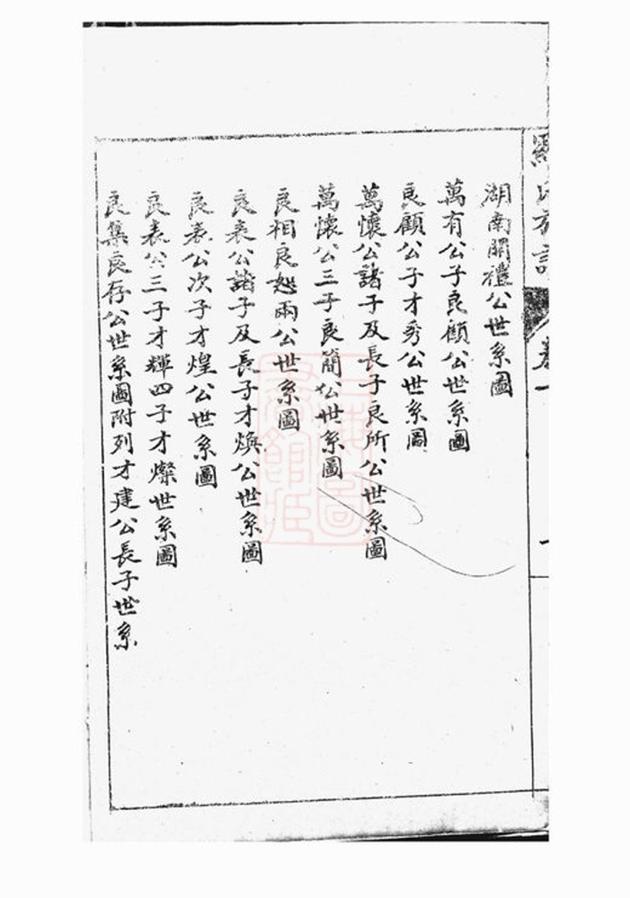 湖南開禮公世系圖
萬有公子良顧公世系圖
良顧公子才秀公世系圖
萬懷公諸子及長子良所公世系圖
萬懷公三子良簡公世系圖
良相良恕兩公世系圖
良表公諸子及長子才煥公世系圖
良表公次子才煌公世系圖
良表公三子才輝四子才燦世系圖
良集良存公世系圖附列才建公長子世系
卷一
一